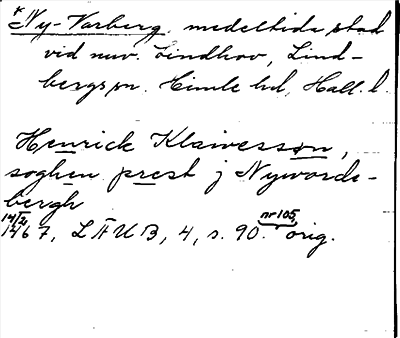 * Ny-Varberg, medeltida stad
vid nuv. Lindhov, Lind-
bergs sn. Himle hd, Hall. l.
Henrick Klawesson,
soghen prest j Nywarde-
bergh
14/2
1467, LÄUB, 4, s. 90. nr 105, orig.